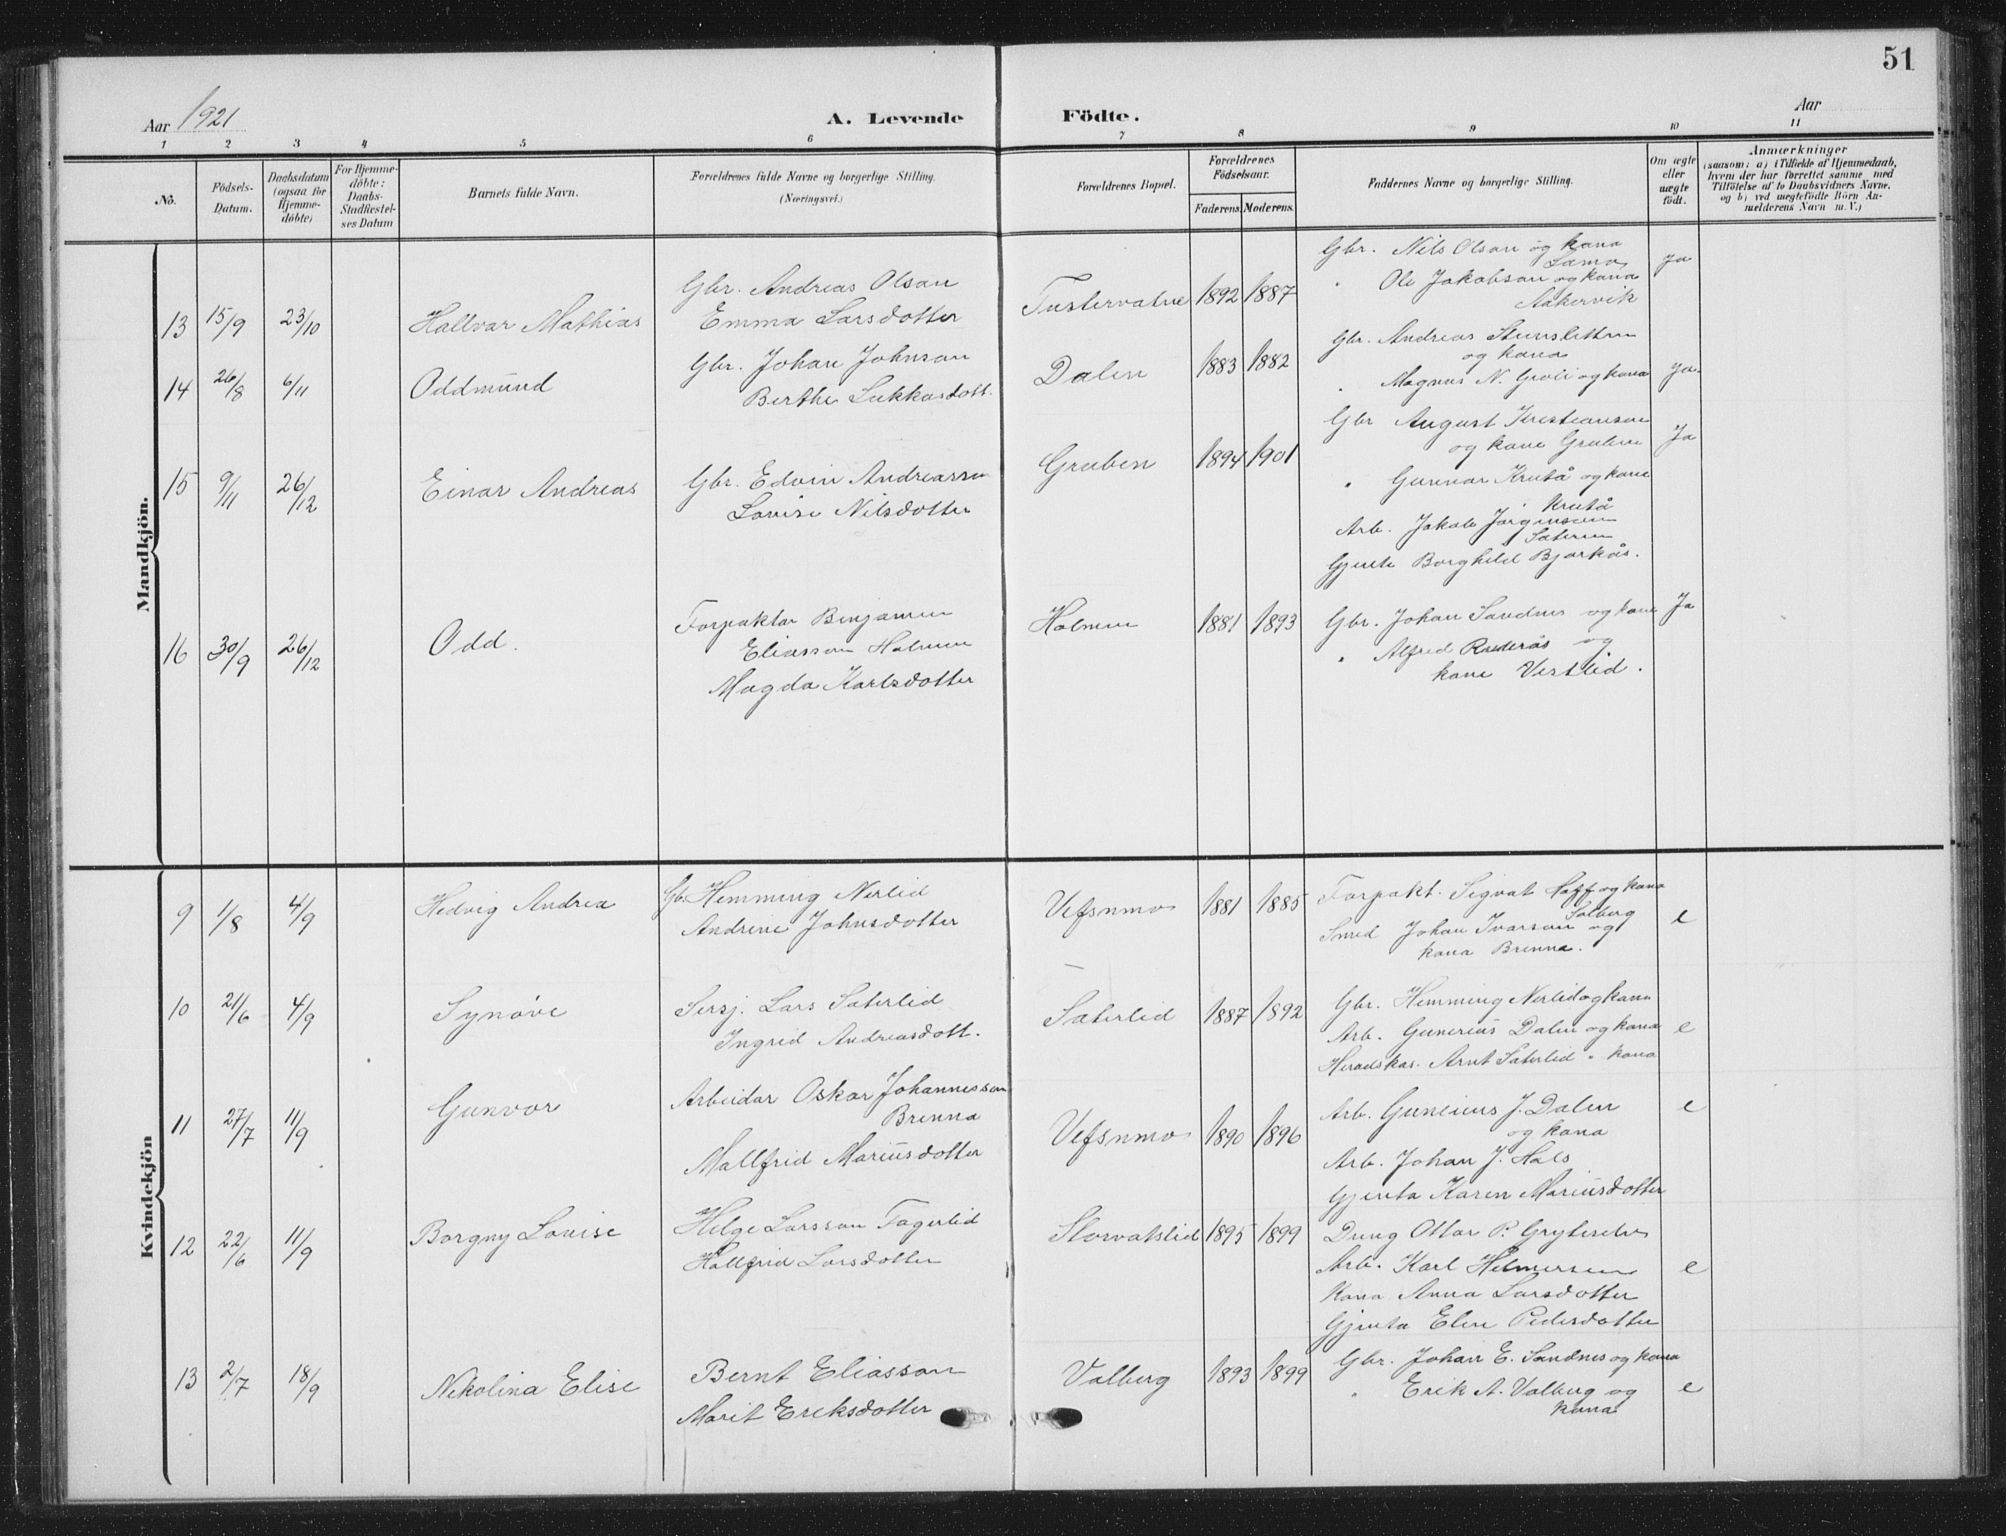 51
Aar 1921
A. Levende Födte.
Aar
1 2 3 4 5 6 7 8 9 10 11
No.
Födsels-Datum.
Daabsdatum (ogsaa for Hjemme-döbte)
For Hjemme-döbte: Daabs-Stadfæstel-ses Datum
Barnets fulde Navn.
Forældrenes fulde Navne og borgerlige Stilling.
(Næringsvei.)
Forældrenes Bopæl.
Forældrenes Födselsaar.
Faderens. Moderens.
Faddernes Navne og borgerlige Stilling.
Om ægte eller uægte födt.
Anmærkninger
(saasom: a) i Tilfælde af Hjemmedaab,
hvem der har forrettet samme med
Tilföielse af to Daabsvidners Navne,
og b) ved uægtefödte Börn An-
melderens Navn m. V.)
Mandkjön.
13 15/9 23/10 Hallvar Mathias
Gbr. Andreas Olsan
Emma Larsdotter
Tustervatne 1892 1887
Gbr. Nils Olsan og kana
" Ole Jakobsan og kana
Aakervik
Ja
14 26/8 6/11 Oddmund
Gbr. Johan Johnsan
Berthe Lukkasdott.
Dalen 1883 1882
Gbr. Andreas
og kana
" Magnus N. og kana
Ja.
15 9/11 26/12 Einar Andreas
Gbr. Edvin Andreassen
Lovise Nilsdotter
Gruben 1894 1901
Gbr August Kristiansen
og kone Gruben
" Gunnar Krutå og kone
Krutå
Arb. Jakob Jørgensen
Gjente Borghild Bjørkås.
Ja
16 30/9 26/12 Odd.
Forpaktar Benjamin
Eliassen Holmen
Magda Karlsdotter
Holmen 1881 1893
Gbr. Johan Sandnes og kone
" Alfred og
kone Vestlid.
Ja
Kvindekjön
9 1/8 4/9 Hedvig Andrea
Gb. Hemming Nerlid
Andrine Johnsdotter
Vefsnmo 1881 1885
Forpakt. Sigvat Hoff og kana
Solberg
Smed Johan Ivarsan og
kana Brenna.
e
10 21/6 4/9 Synøve
Sersj. Lars Sæterlid
Ingrid Andreasdott.
Sæterlid 1887 1892
Gbr. Hemming Nerlid og kana
Arb. Gunerius Dalen og kana
Heradskas. Arnt Sæterlid " kana
e
11 27/7 11/9 Gunvor
Arbeidar Oskar Johannessan
Brenna
Mallfrid Mariusdotter
Vefsnmo 1890 1896
Arb. Gunerius J. Dalen
og kana
Arb. Johan J. Hals
Gjenta Karen Mariusdotter
e
12 22/6 11/9 Borgny Lovise
Helge Larssan Fagerlid
Hallfrid Larsdotter
Storvatslid 1895 1899
Dreng Ottar P.
Arb. Karl Helmersen
Kana Anna Larsdotter
Gjenta Elen Pedersdotter
e
13 2/7 18/9 Nikolina Elise
Bernt Eliassan
Marit Eriksdotter
Valberg 1893 1899
Gbr. Johan E. Sandnes og kana
" Erik A. Valberg og
kana
e